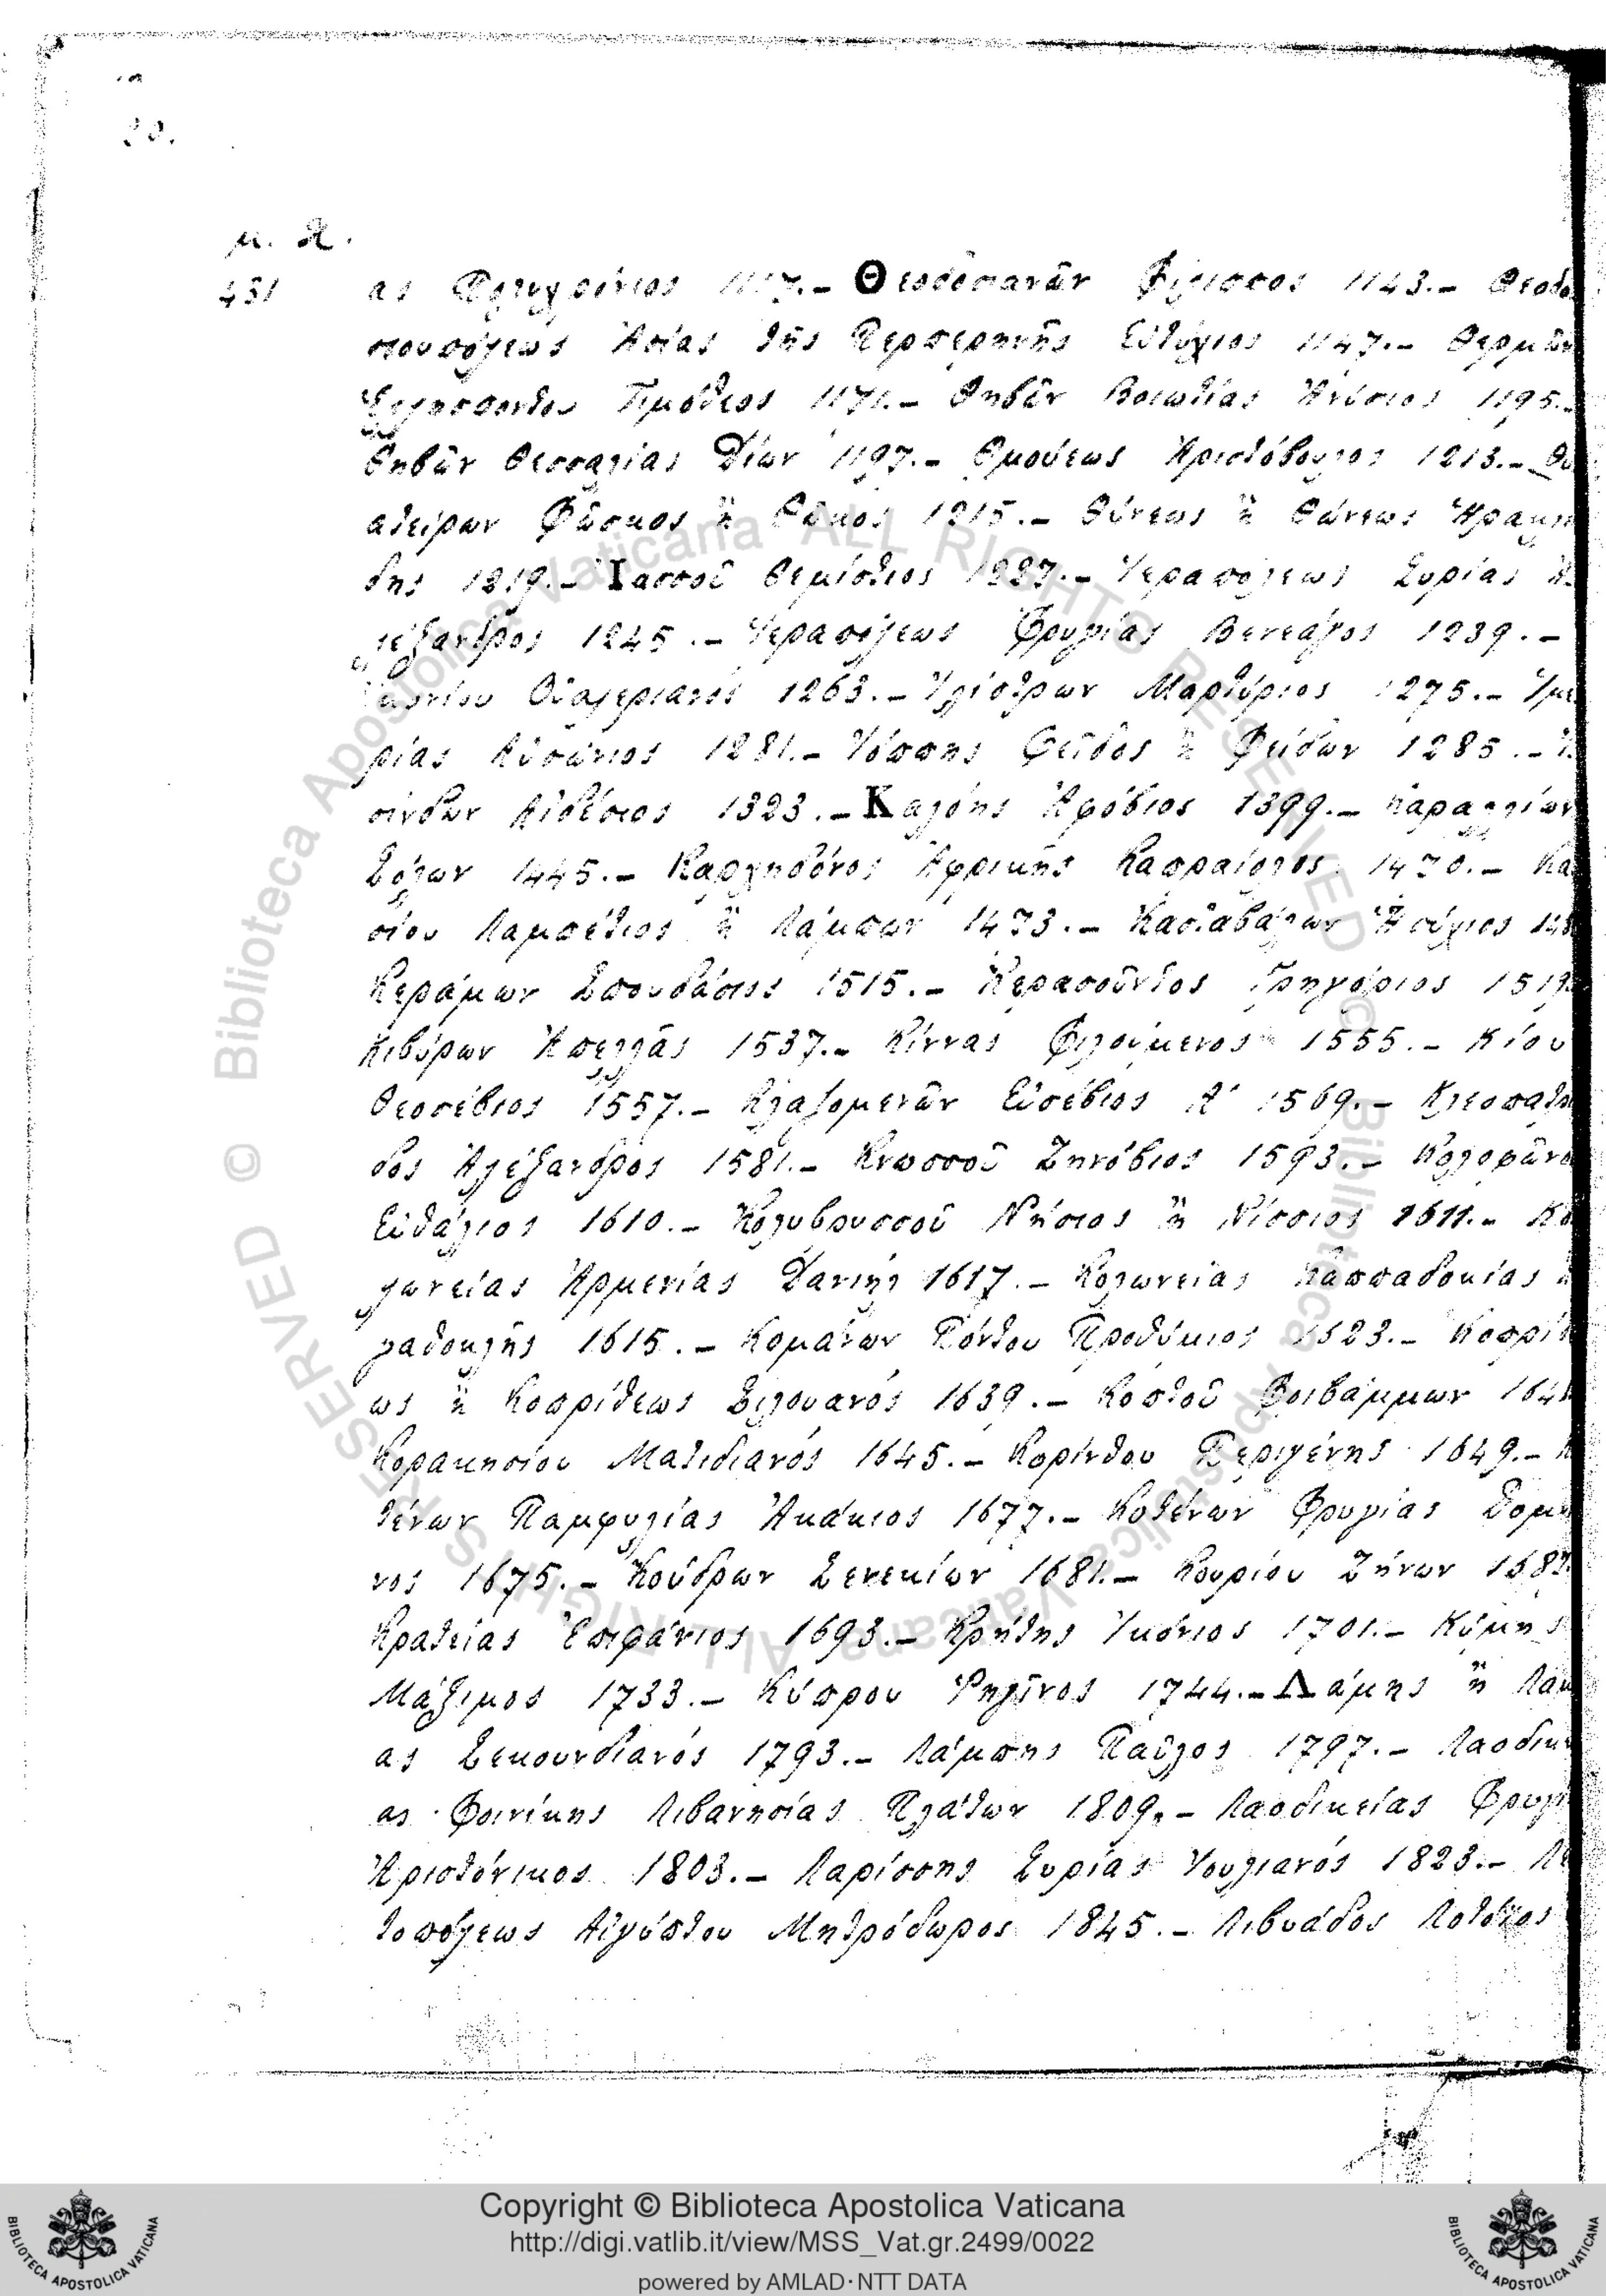 20.
μ. Χ.
431 ας Πολυχρόνιος 1117.– Θεοδοσιανῶν Φίλιππος 1143.– Θεοδο
σιουπόλεως Ἀσίας τῆς Περπερηνῆς Εὐτύχιος 1147.– Θερμῶν
Ἑλλησπόντου Τιμόθεος 1171.– Θηβῶν Βοιωτίας Ἀνύσιος 1195.–
Θηβῶν Θεσσαλίας Δίων 1197.– Θμούεως Ἀριστόβουλος 1213.– Θυ
ατείρων Φῶσκος ἢ Φῶκος 1215.– Θύνεως ἢ Θώνεως Ἡρακλεί
δης 1219.– Ἰασσοῦ Θεμίστιος 1227.– Ἱεραπόλεως Συρίας Ἀ
λέξανδρος 1245.– Ἱεραπόλεως Φρυγίας Βενεάγος 1239.–
Ἰκονίου Οὐαλεριανός 1263.– Ἰλίστρων Μαρτύριος 1275.– Ἰμε
ρίας Αὐσώνιος 1281.– Ἰόππης Φεῖδος ἢ Φείδων 1285.– Ἰ
σίνδων Αἰδέσιος 1323.– Καλόης Ἀφόβιος 1399.– Καραλλίων
Σόλων 1445.– Καρχηδόνος Ἀφρικῆς Καπραίολος 1470.– Κα
σίου Λαμπέτιος ἢ Λάμπων 1473.– Κασταβάλων Ἡσύχιος 148
Κεράμων Σπουδάσιος 1515.– Κερασοῦντος Γρηγόριος 1519
Κιβύρων Ἀπελλᾶς 1537.– Κίννας Φιλούμενος 1555.– Κίου
Θεοσέβιος 1557.– Κλαζομενῶν Εὐσέβιος Α΄ 1569.– Κλεοπατρί
δος Ἀλέξανδρος 1581.– Κνωσσοῦ Ζηνόβιος 1593.– Κολοφῶνο
Εὐθάλιος 1610.– Κολυβρυσσοῦ Νήσιος ἢ Νίσσιος 1611.– Κο
λωνείας Ἀρμενίας Δανιήλ 1617.– Κολωνείας Καππαδοκίας Ἀ
ραδοκλῆς 1615.– Κομάνων Πόντου Προθύμιος 1623.– Κοπρίθ
ως ἢ Κοπρίτεως Σιλουανός 1639.– Κοπτοῦ Φοιβάμμων 1641
Κορακησίου Ματιδιανός 1645.– Κορίνθου Περιγένης 1649.– Κ
τένων Παμφυλίας Ἀκάκιος 1677.– Κοτένων Φρυγίας Δομν
νος 1675.– Κούδρων Σενεκίων 1681.– Κουρίου Ζήνων 1687.
Κρατείας Ἐπιφάνιος 1693.– Κρήτης Ἰκόνιος 1701.– Κύμης
Μάξιμος 1733.– Κύπρου Ῥηγῖνος 1744.– Λάμης ἢ Λαμ
ας Σεκουνδιανός 1793.– Λάμπης Παῦλος 1797.– Λαοδικεί
ας Φοινίκης Λιβανησίας Πλάτων 1809.– Λαοδικείας Φρυγί
Ἀριστόνικος 1803.– Λαρίσσης Συρίας Ἰουλιανός 1823.– Λε
τοπόλεως Αἰγύπτου Μητρόδωρος 1845.– Λιβυάδος
© Biblioteca Apostolica Vaticana ALL RIGHTS RESERVED
Copyright © Biblioteca Apostolica Vaticana
http://digi.vatlib.it/view/MSS_Vat.gr.2499/0022
powered by AMLAD·NTT DATA
BIBLIOTECA APOSTOLICA VATICANA
BIBLIOTECA APOSTOLICA VATICANA